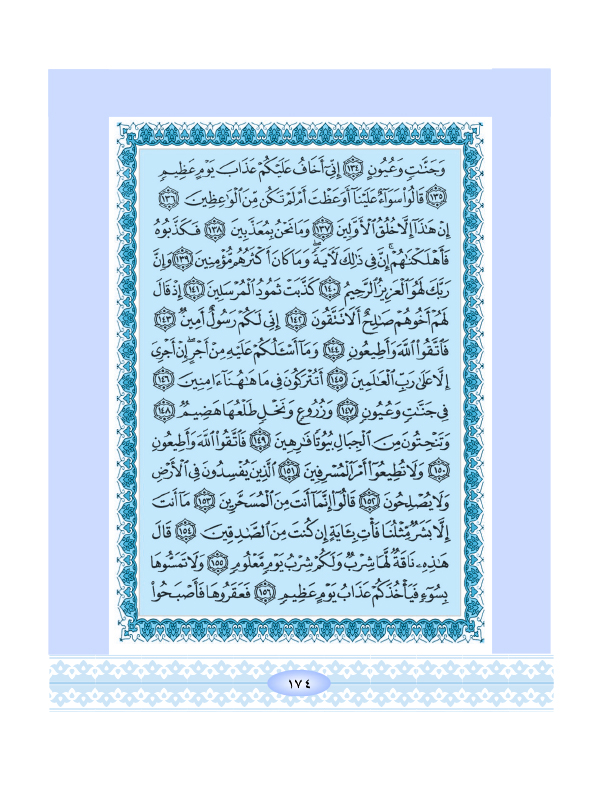 وَجَنَّٰتٍ وَعُيُونٍ ١٣٤ إِنِّىٓ أَخَافُ عَلَيْكُمْ عَذَابَ يَوْمٍ عَظِيمٍ
١٣٥ قَالُوا۟ سَوَآءٌ عَلَيْنَآ أَوَعَظْتَ أَمْ لَمْ تَكُن مِّنَ ٱلْوَٰعِظِينَ ١٣٦
إِنْ هَٰذَآ إِلَّا خُلُقُ ٱلْأَوَّلِينَ ١٣٧ وَمَا نَحْنُ بِمُعَذَّبِينَ ١٣٨ فَكَذَّبُوهُ
فَأَهْلَكْنَٰهُمْ ۗ إِنَّ فِى ذَٰلِكَ لَءَايَةً ۖ وَمَا كَانَ أَكْثَرُهُم مُّؤْمِنِينَ ١٣٩ وَإِنَّ
رَبَّكَ لَهُوَ ٱلْعَزِيزُ ٱلرَّحِيمُ ١٤٠ كَذَّبَتْ ثَمُودُ ٱلْمُرْسَلِينَ ١٤١ إِذْ قَالَ
لَهُمْ أَخُوهُمْ صَٰلِحٌ أَلَا تَتَّقُونَ ١٤٢ إِنِّى لَكُمْ رَسُولٌ أَمِينٌ ١٤٣
فَٱتَّقُوا۟ ٱللَّهَ وَأَطِيعُونِ ١٤٤ وَمَآ أَسْـَٔلُكُمْ عَلَيْهِ مِنْ أَجْرٍ ۖ إِنْ أَجْرِىَ
إِلَّا عَلَىٰ رَبِّ ٱلْعَٰلَمِينَ ١٤٥ أَتُتْرَكُونَ فِى مَا هَٰهُنَآ ءَامِنِينَ ١٤٦
فِى جَنَّٰتٍ وَعُيُونٍ ١٤٧ وَزُرُوعٍ وَنَخْلٍ طَلْعُهَا هَضِيمٌ ١٤٨
وَتَنْحِتُونَ مِنَ ٱلْجِبَالِ بُيُوتًا فَٰرِهِينَ ١٤٩ فَٱتَّقُوا۟ ٱللَّهَ وَأَطِيعُونِ
١٥٠ وَلَا تُطِيعُوٓا۟ أَمْرَ ٱلْمُسْرِفِينَ ١٥١ ٱلَّذِينَ يُفْسِدُونَ فِى ٱلْأَرْضِ
وَلَا يُصْلِحُونَ ١٥٢ قَالُوٓا۟ إِنَّمَآ أَنتَ مِنَ ٱلْمُسَحَّرِينَ ١٥٣ مَآ أَنتَ
إِلَّا بَشَرٌ مِّثْلُنَا فَأْتِ بِـَٔايَةٍ إِن كُنتَ مِنَ ٱلصَّٰدِقِينَ ١٥٤ قَالَ
هَٰذِهِۦ نَاقَةٌ لَّهَا شِرْبٌ وَلَكُمْ شِرْبُ يَوْمٍ مَّعْلُومٍ ١٥٥ وَلَا تَمَسُّوهَا
بِسُوٓءٍ فَيَأْخُذَكُمْ عَذَابُ يَوْمٍ عَظِيمٍ ١٥٦ فَعَقَرُوهَا فَأَصْبَحُوا۟
١٧٤